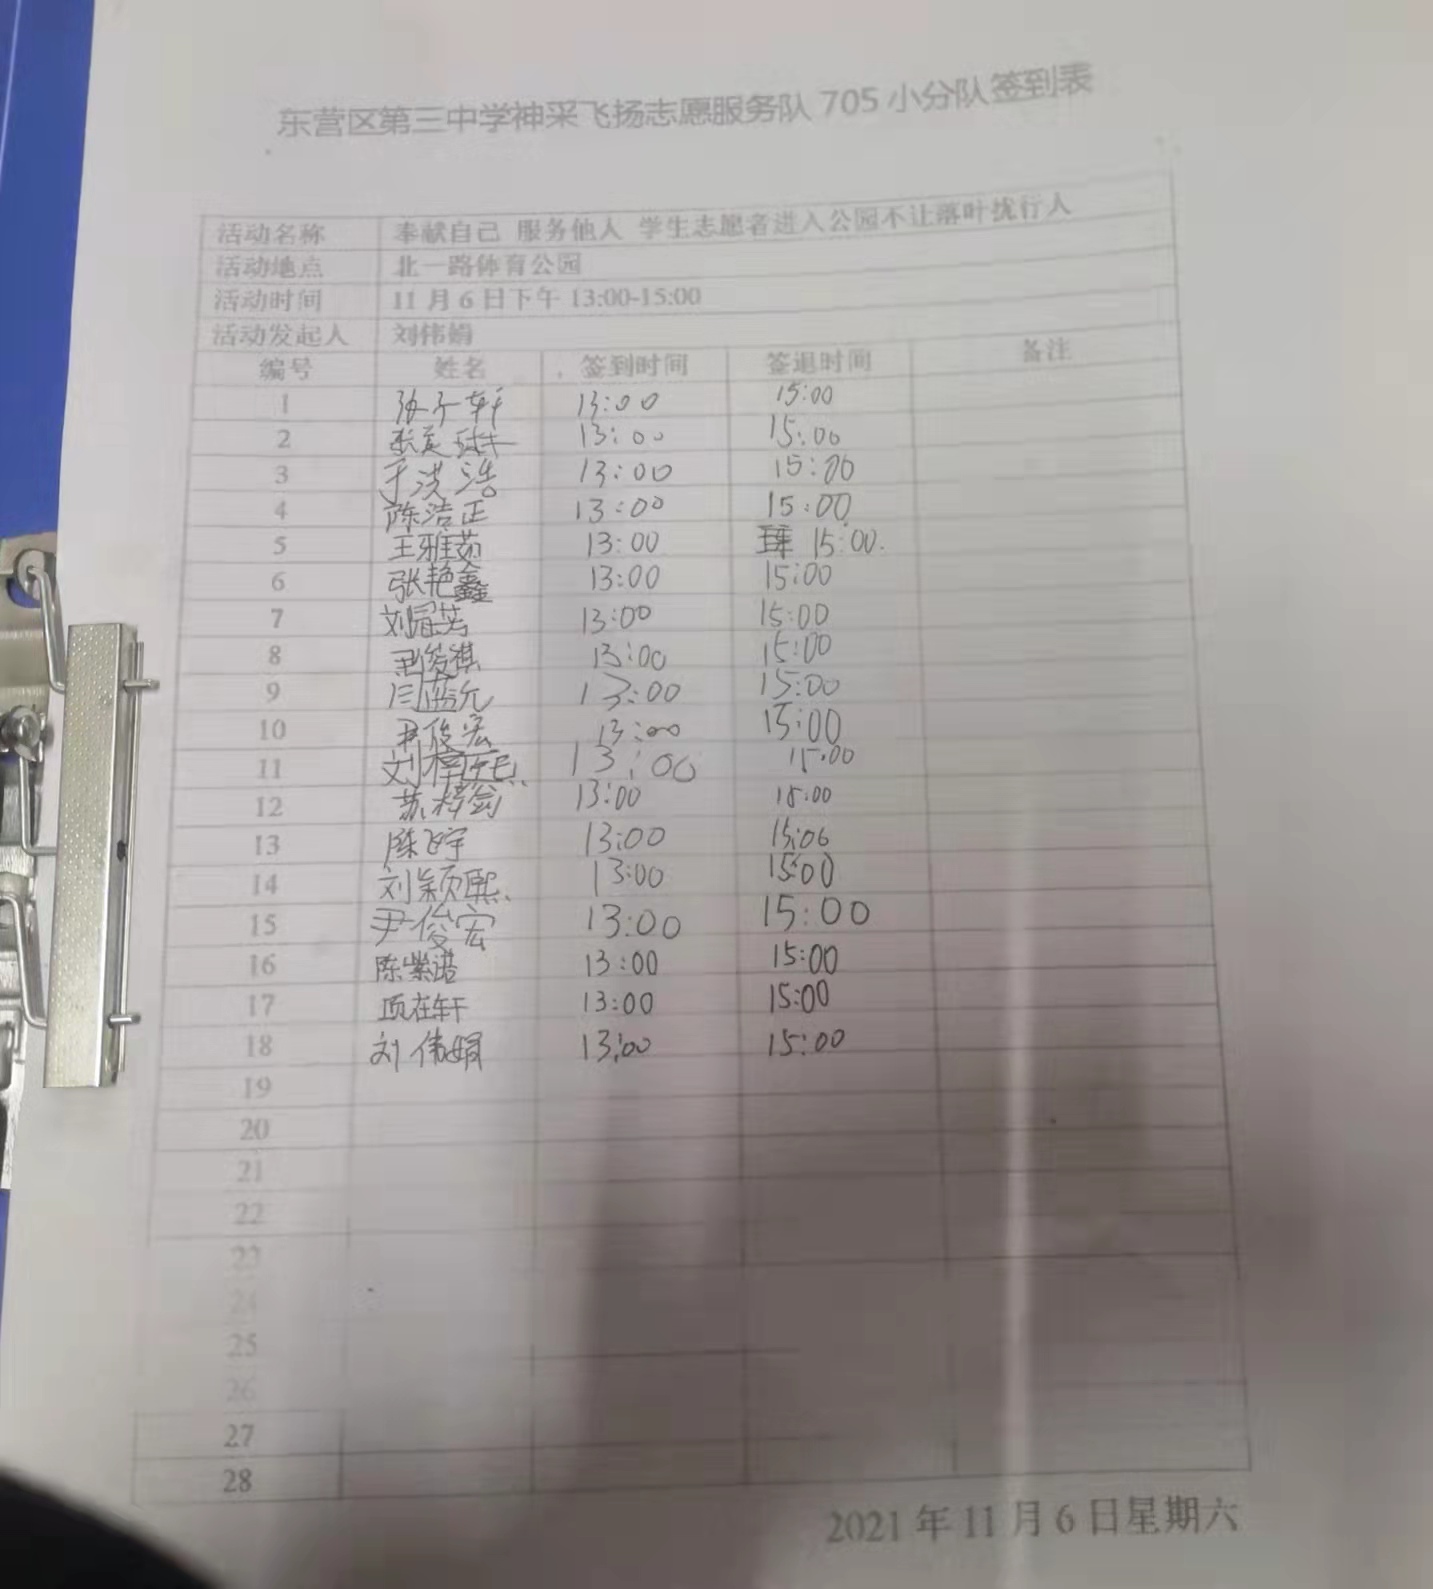 东营区第三中学神采飞扬志愿服务队 705 小分队签到表
活动名称 奉献自己 服务他人 学生志愿者进入公园不让落叶扰行人
活动地点 北一路体育公园
活动时间 11 月 6 日下午 13:00-15:00
活动发起人 刘伟娟
编号 姓名 签到时间 签退时间 备注
1 13:00 15:00
2 13:00 15:00
3 于洪浩 13:00 15:00
4 陈浩正 13:00 15:00
5 王雅茹 13:00 15:00.
6 张艳鑫 13:00 15:00
7 刘冠芳 13:00 15:00
8 尹俊祺 13:00 15:00
9 闫蓝允 13:00 15:00
10 尹俊宏 13:00 15:00
11 13:00 15:00
12 13:00 15:00
13 陈飞宇 13:00 15:00
14 刘颖熙 13:00 15:00
15 尹俊宏 13:00 15:00
16 陈紫诺 13:00 15:00
17 项在轩 13:00 15:00
18 刘伟娟 13:00 15:00
19
20
21
22
23
24
25
26
27
28
2021 年 11 月 6 日星期六